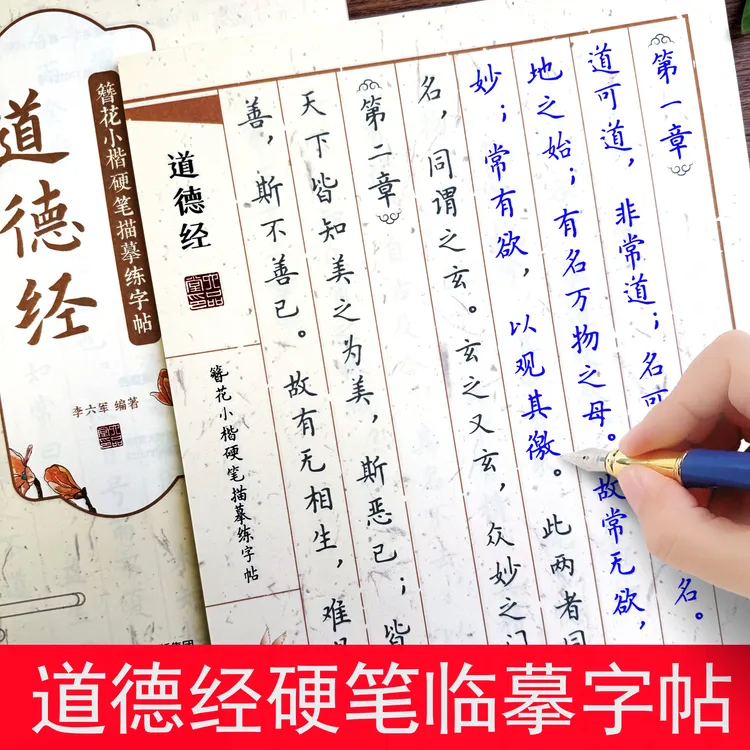 道德经
簪花小楷硬笔描摹练字帖
李六军 编著
第一章
道可道，非常道；名可
名。
地之始；有名万物之母。故常无欲，
妙；常有欲，以观其徼。此两者同
名，同谓之玄。玄之又玄，众妙之门
第二章
天下皆知美之为美，斯恶已；皆
善，斯不善已。故有无相生，难
道德经
簪花小楷硬笔描摹练字帖
道德经硬笔临摹字帖